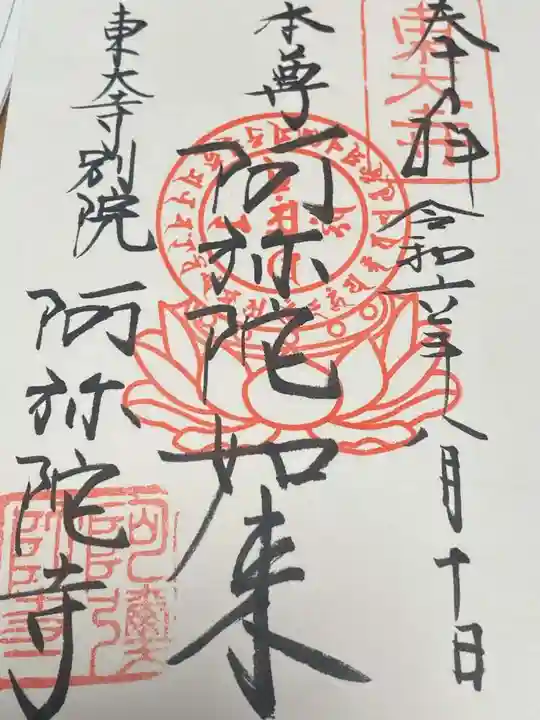 奉拝 令和六年八月十日
東大寺
本尊
阿弥陀如来
東大寺別院
阿弥陀寺